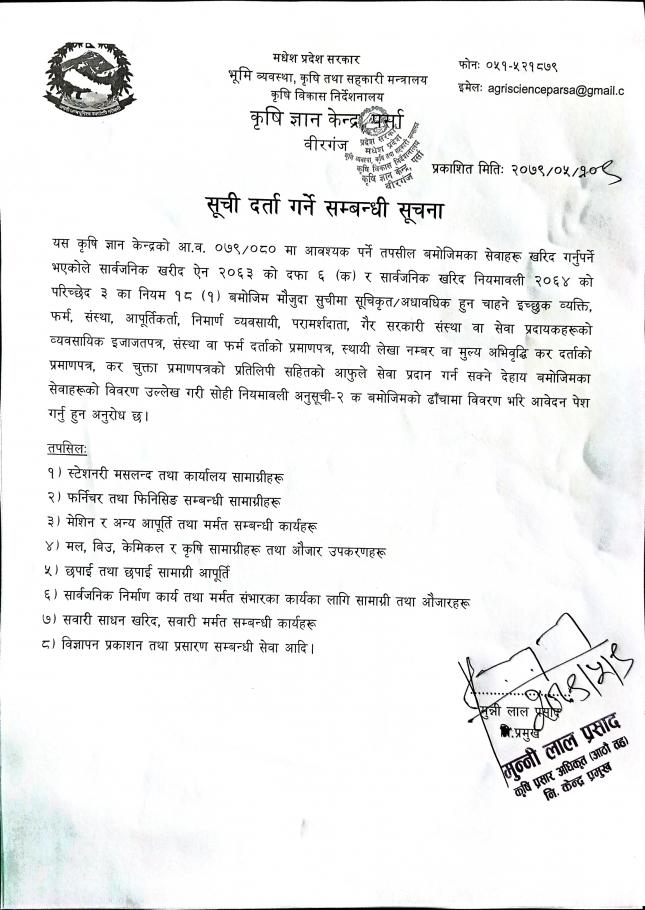 मधेश प्रदेश सरकार
भूमि व्यवस्था, कृषि तथा सहकारी मन्त्रालय
कृषि विकास निर्देशनालय
कृषि ज्ञान केन्द्र पर्सा
वीरगंज
फोनः ०५१-५२१८७९
इमेलः agriscienceparsa@gmail.c
प्रदेश सरकार
मधेश प्रदेश
कृषि विकास निर्देशनालय
कृषि ज्ञान केन्द्र, पर्सा
वीरगंज
प्रकाशित मितिः २०७९/०५/०९
सूची दर्ता गर्ने सम्बन्धी सूचना
यस कृषि ज्ञान केन्द्रको आ.व. ०७९/०८० मा आवश्यक पर्ने तपसील बमोजिमका सेवाहरू खरिद गर्नुपर्ने
भएकोले सार्वजनिक खरीद ऐन २०६३ को दफा ६ (क) र सार्वजनिक खरिद नियमावली २०६४ को
परिच्छेद ३ का नियम १८ (१) बमोजिम मौजुदा सुचीमा सूचिकृत/अधावधिक हुन चाहने इच्छुक व्यक्ति,
फर्म, संस्था, आपूर्तिकर्ता, निमार्ण व्यवसायी, परामर्शदाता, गैर सरकारी संस्था वा सेवा प्रदायकहरूको
व्यवसायिक इजाजतपत्र, संस्था वा फर्म दर्ताको प्रमाणपत्र, स्थायी लेखा नम्बर वा मुल्य अभिवृद्धि कर दर्ताको
प्रमाणपत्र, कर चुक्ता प्रमाणपत्रको प्रतिलिपी सहितको आफुले सेवा प्रदान गर्न सक्ने देहाय बमोजिमका
सेवाहरूको विवरण उल्लेख गरी सोही नियमावली अनुसूची-२ क बमोजिमको ढाँचामा विवरण भरि आवेदन पेश
गर्नु हुन अनुरोध छ।
तपसिलः
१) स्टेशनरी मसलन्द तथा कार्यालय सामाग्रीहरू
२) फर्निचर तथा फिनिसिङ सम्बन्धी सामाग्रीहरू
३) मेशिन र अन्य आपूर्ति तथा मर्मत सम्बन्धी कार्यहरू
४) मल, बिउ, केमिकल र कृषि सामाग्रीहरू तथा औजार उपकरणहरू
५) छपाई तथा छपाई सामाग्री आपूर्ति
६) सार्वजनिक निर्माण कार्य तथा मर्मत संभारका कार्यका लागि सामाग्री तथा औजारहरू
७) सवारी साधन खरिद, सवारी मर्मत सम्बन्धी कार्यहरू
८) विज्ञापन प्रकाशन तथा प्रसारण सम्बन्धी सेवा आदि।
२०७९/५/९
मुन्नी लाल प्रसाद
नि.प्रमुख
मुन्नी लाल प्रसाद
कृषि प्रसार अधिकृत (आठौ तह)
नि. केन्द्र प्रमुख